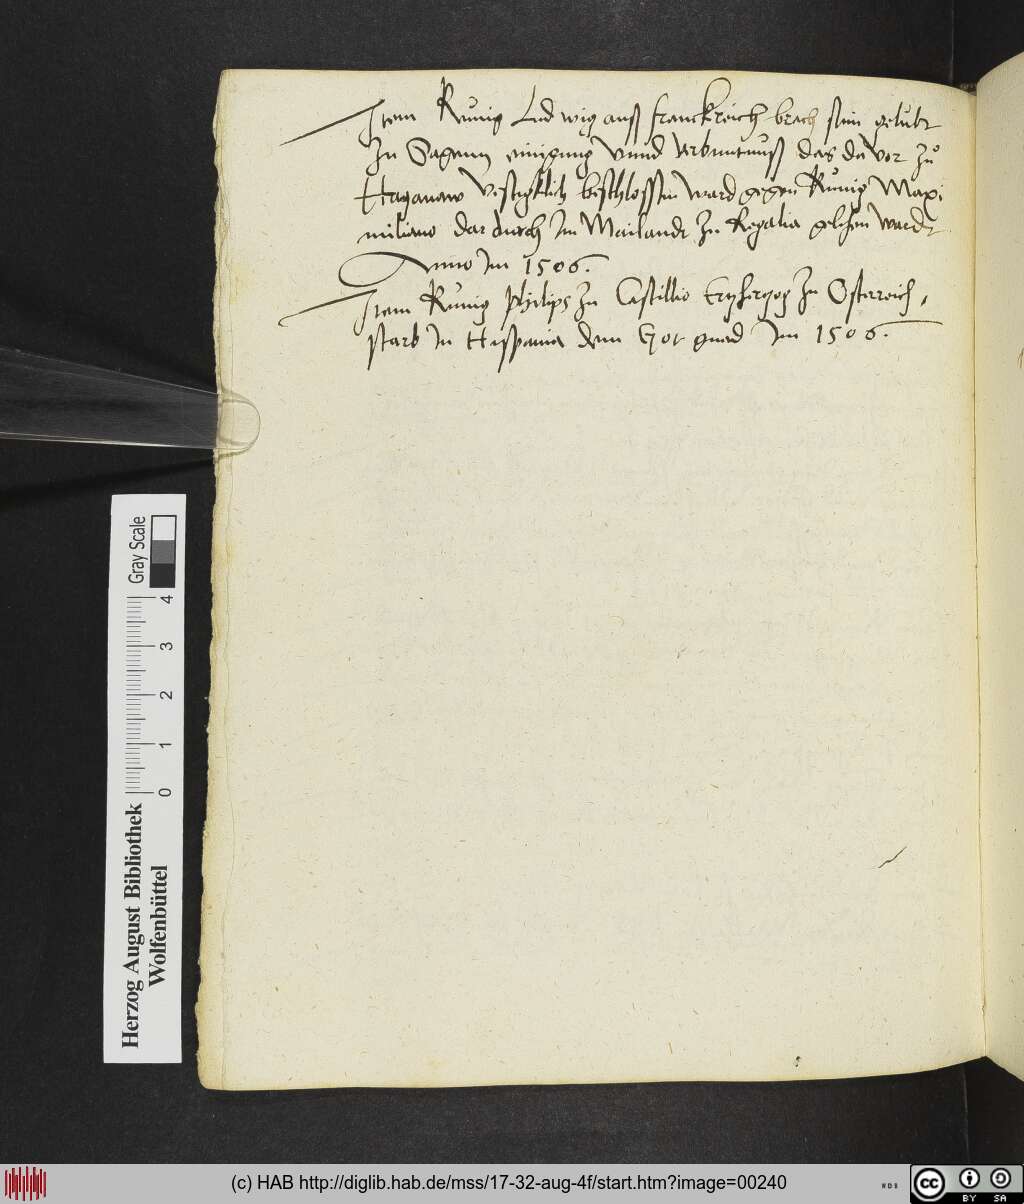 Item Kunig Ludwig auß franckreich brach sein gelubt
Zu Sagenn einigung vnnd verbuntnuß das da vor zů
Haganaw vestigklich beschlossen ward gegen Kunig Maxi
miliano dar durch Im Mailandt zu Regalia gelihen wardt
Anno im 1506.
Item Kunig Philips zu Castillio Ertzhertzog zu Osterreich,
starb in Hispania dem Got gnad im 1506.
Herzog August Bibliothek
Wolfenbüttel
0 1 2 3 4
Gray Scale
(c) HAB http://diglib.hab.de/mss/17-32-aug-4f/start.htm?image=00240
WDB
cc BY SA